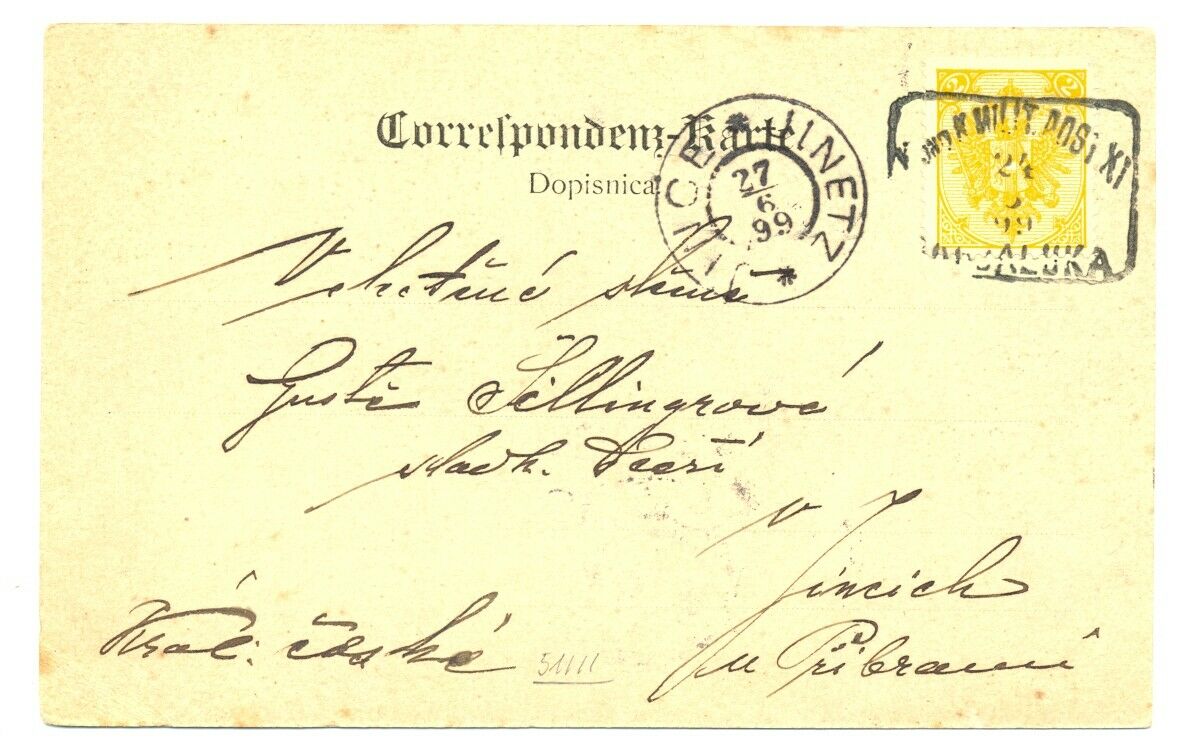 Correspondenz-Karte
Dopisnica
2 2
K UND K MILIT. POST XI
24
99
BANJALUKA
JINCE * JINETZ *
27/6
99
Velectěné slečně
Gustě Šillingrové
sladk. Dceři
v Jincích
u Příbrami
Král. české